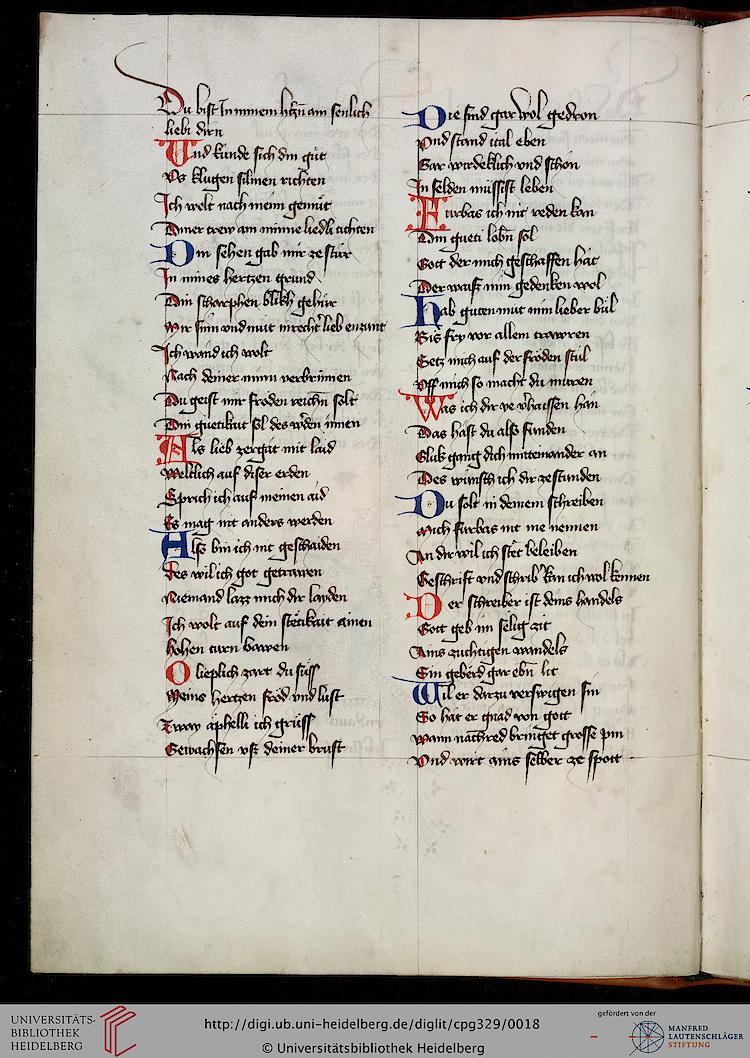 Du bist In minem hertzn ain senlich
liebi dirn
Und kunde sich din guͤt
Vs klugen silmen richten
Ich welt nach meim gemuͤt
Diner trew ain minne liedli tichten
Din sehen gab mir ze stúr
In mines hertzen grund
Din scharphen blikh gehúr
Mir sinn vnd mut in recht lieb enzunt
Ich wand ich wolt
Nach deiner minn verbrinnen
Du geist mir froden reichn solt
Din guetikait sol des wden innen
Als lieb zergat mit laid
Weltlich auf diser erden
Sprich ich auf meinen aid
Es mag nit anders werden
Alß bin ich nit geschaiden
Des wil ich got getrawen
Niemand lazz mich dir layden
Ich wolt auf dein staͤtikait ainen
hohen turn bawen
O lieplich zart du súss
Meins hertzen froͤd vnd lust
Zway aͤphelli ich gruͤss
Gewachsen vsz deiner brust
Die sind gar wol gedron
Vnd stand ital eben
Gar wirdeklich vnd schon
In selden muͤssist leben
Furbas ich nit reden kan
Din gueti lobn sol
Gott der mich geschaffen hát
Der waist min gedenken wol
Hab guten mut min lieber bul
Bis fry vor allem trawren
Setz mich auf der froden stul
Vff mich so macht du muren
Was ich dir ye verhaissen han
Das hast du alß funden
Gluk gang dich mitteinander an
Des wúnsch ich dir ze stunden
Du solt in deinem schreiben
Mich furbas nit me nennen
An dir wil ich staͤt beleiben
Geschrift vnd schrib kan ich wol kennen
Der schreiber ist deins handels
Gott geb im selig zit
Ains zuchtigen wandels
Ein geberd gar ebn lit
Wil er darzu verswigen sin
So hat er gnad von gott
Wann nachred bringet grosse pin
Vnd wirt ains selber ze spott
UNIVERSITÄTS-
BIBLIOTHEK
HEIDELBERG
http://digi.ub.uni-heidelberg.de/diglit/cpg329/0018
© Universitätsbibliothek Heidelberg
gefördert von der
MANFRED
LAUTENSCHLÄGER
STIFTUNG